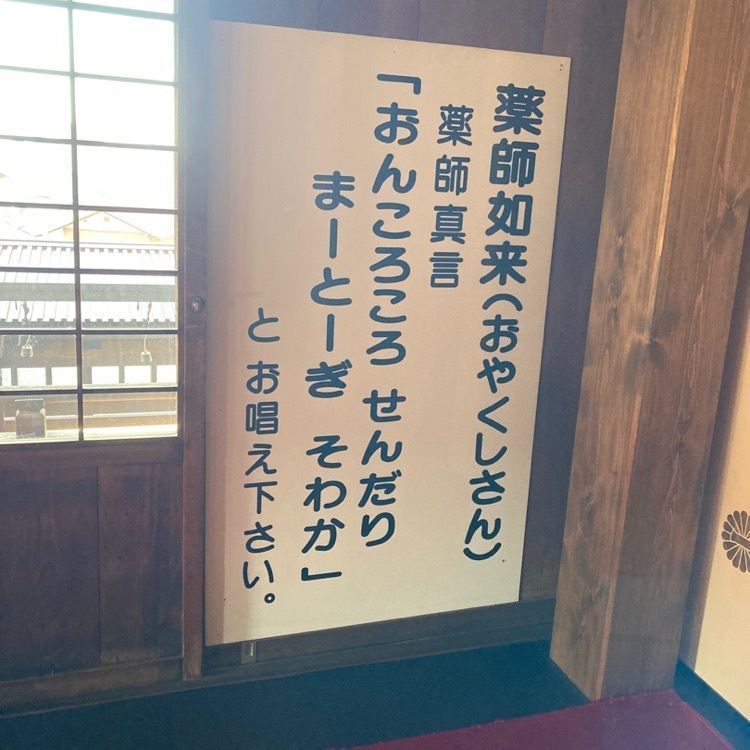 薬師如来(おやくしさん)
薬師真言
「おんころころ せんだり
まーとーぎ そわか」
とお唱え下さい。